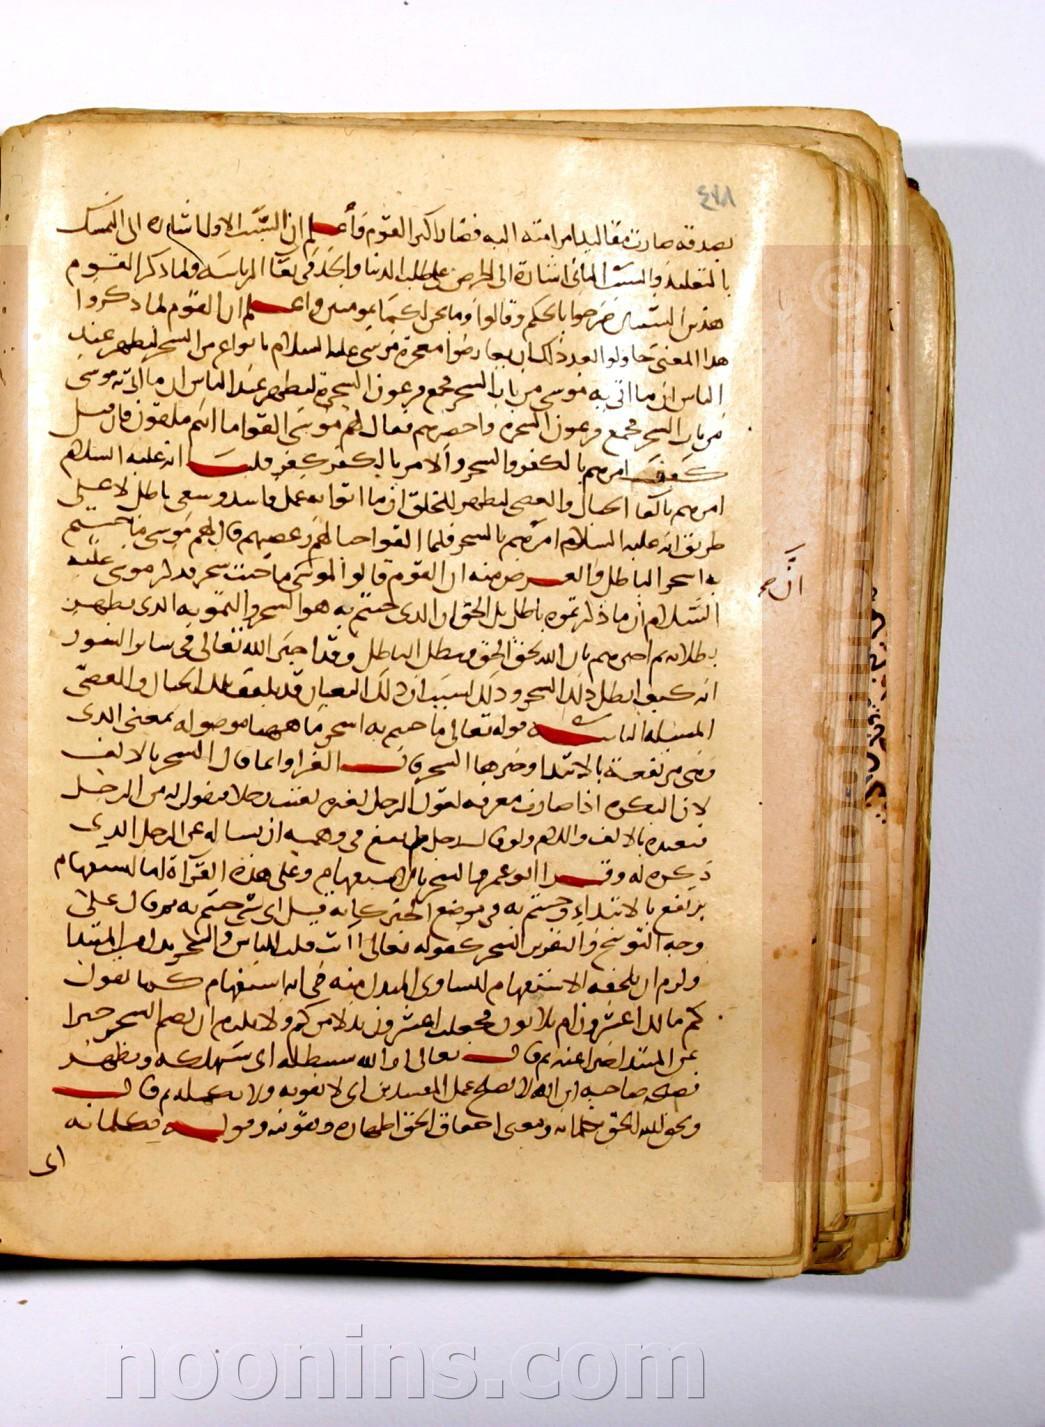 ٤٧٨
بصدقه صارت مقاليد امر امته اليه فصار اكبر القوم واعلم ان السبب الاول اشارة الى التمسك
بالتقليد والسبب الثاني اشارة الى الحرص على طلب الدنيا والجد في بقا الرياسة ولما ذكر القوم
هذين السببين صرحوا بالحكم وقالوا وما نحن لكما بمومنين واعلم ان القوم لما ذكروا
هذا المعنى حاولوا بعد ذلك ان يعارضوا معجزة موسى عليه السلام بانواع من السحر ليظهر عند
الناس ان ما اتى به موسى من باب السحر فجمع فرعون السحرة ليظهر عند الناس ان ما اتى به موسى
من باب السحر فجمع فرعون السحرة واحضرهم فقال لهم موسى القوا ما انتم ملقون فان قيل
كيف امرهم بالكفر والسحر والامر بالكفر كفر قلت انه عليه السلام
امرهم بالقا الحبال والعصي ليظهر للخلق ان ما اتوا به عمل فاسد وسعي باطل لا على
طريق انه عليه السلام امرهم بالسحر فلما القوا حبالهم وعصيهم قال لهم موسى ما جيتم
به السحر الباطل والغرض منه ان القوم قالوا لموسى ما جيت سحر فذكر موسى عليه
السلام ان ما ذكرتموه باطل بل الحق ان الذي جيتم به هو السحر والتمويه الذي يظهر
بطلانه ثم اخبرهم بان الله يحق الحق ويبطل الباطل وقد اخبر الله تعالى في سائر السور
انه كيف ابطل ذلك السحر وذلك بسبب ان ذلك الثعبان قد تلقف تلك الحبال والعصي
المسئلة الثانية قوله تعالى ما جيتم به السحر ما ههنا موصولة بمعنى الذي
وهي مرتفعة بالابتدا وخبرها السحر قال الفرا وانما قال السحر بالالف
لان النكرة اذا صارت معرفة لقول الرجل لغيره لقيت رجلا فيقول له من الرجل
فيعيده بالالف واللام ولو قال رجل لم يقع في وهمه انه يساله عن الرجل الذي
ذكره له وقرا ابو عمرو السحر بالاستفهام وعلى هذه القراة ما استفهام
يرتفع بالابتداء وجيتم به في موضع الخبر كانه قيل اي شي جيتم به ثم قال على
وجه التوبيخ والتقرير السحر كقوله تعالى اانت قلت للناس والسحر بدل من المبتدا
ولزم ان يلحقه الاستفهام ليساوي المبدل منه في انه استفهام كما تقول
كم مالك اعشرون ام ثلاثون فجعلت اعشرون بدلا من كم ولا يلزم ان يضمر السحر خبرا
عن المبتدا خبرا عنه ثم قال تعالى ان الله سيبطله اي سيهلكه ويظهر
فضيحة صاحبه ان الله لا يصلح عمل المفسدين اي لا يقويه ولا يكمله ثم قال
ويحق الله الحق بكلماته ومعنى احقاق الحق اظهاره وتقويته وقوله بكلماته
اي
ان صح
noonins.com
© www.noonins.com